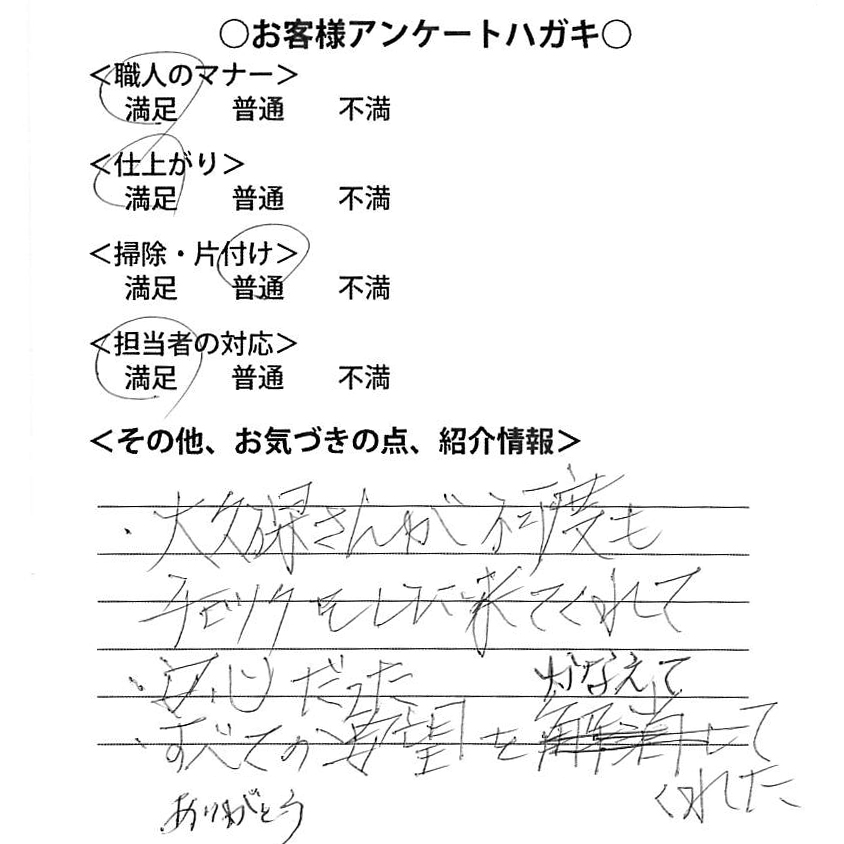 ○お客様アンケートハガキ○
<職人のマナー>
満足 普通 不満
<仕上がり>
満足 普通 不満
<掃除・片付け>
満足 普通 不満
<担当者の対応>
満足 普通 不満
<その他、お気づきの点、紹介情報>
・大久保さんが何度も
チェックをしに来てくれて
・安心だった
かなえて
・すべての要望を解消して
くれた
ありがとう